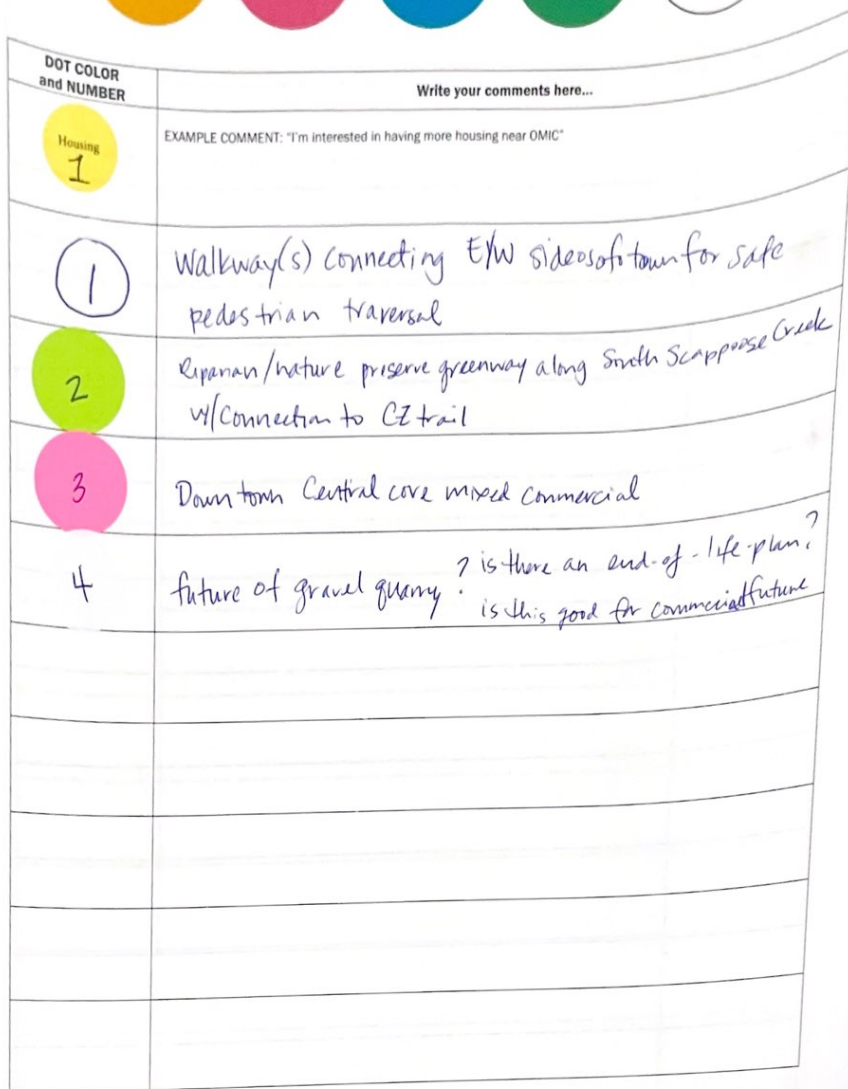 DOT COLOR
and NUMBER
Write your comments here...
Housing
1
EXAMPLE COMMENT: "I'm interested in having more housing near OMIC"
1
Walkway(s) connecting E/W sides of town for safe
pedestrian traversal
2
Riparian/nature preserve greenway along South Scappoose Creek
w/ Connection to CZ trail
3
Downtown Central core mixed commercial
4
future of gravel quarry ? is there an end-of-life-plan?
is this good for commercial future